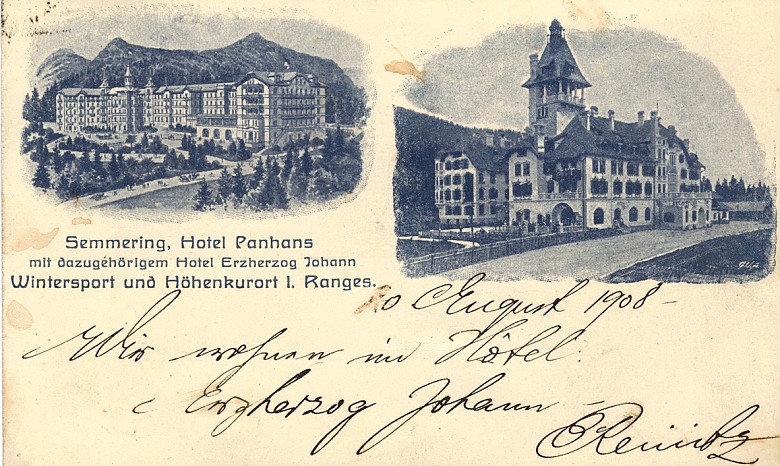 Semmering, Hotel Panhans
mit dazugehörigem Hotel Erzherzog Johann
Wintersport und Höhenkurort I. Ranges.
August 1908 -
Wir wohnen im Hôtel
Erzherzog Johann